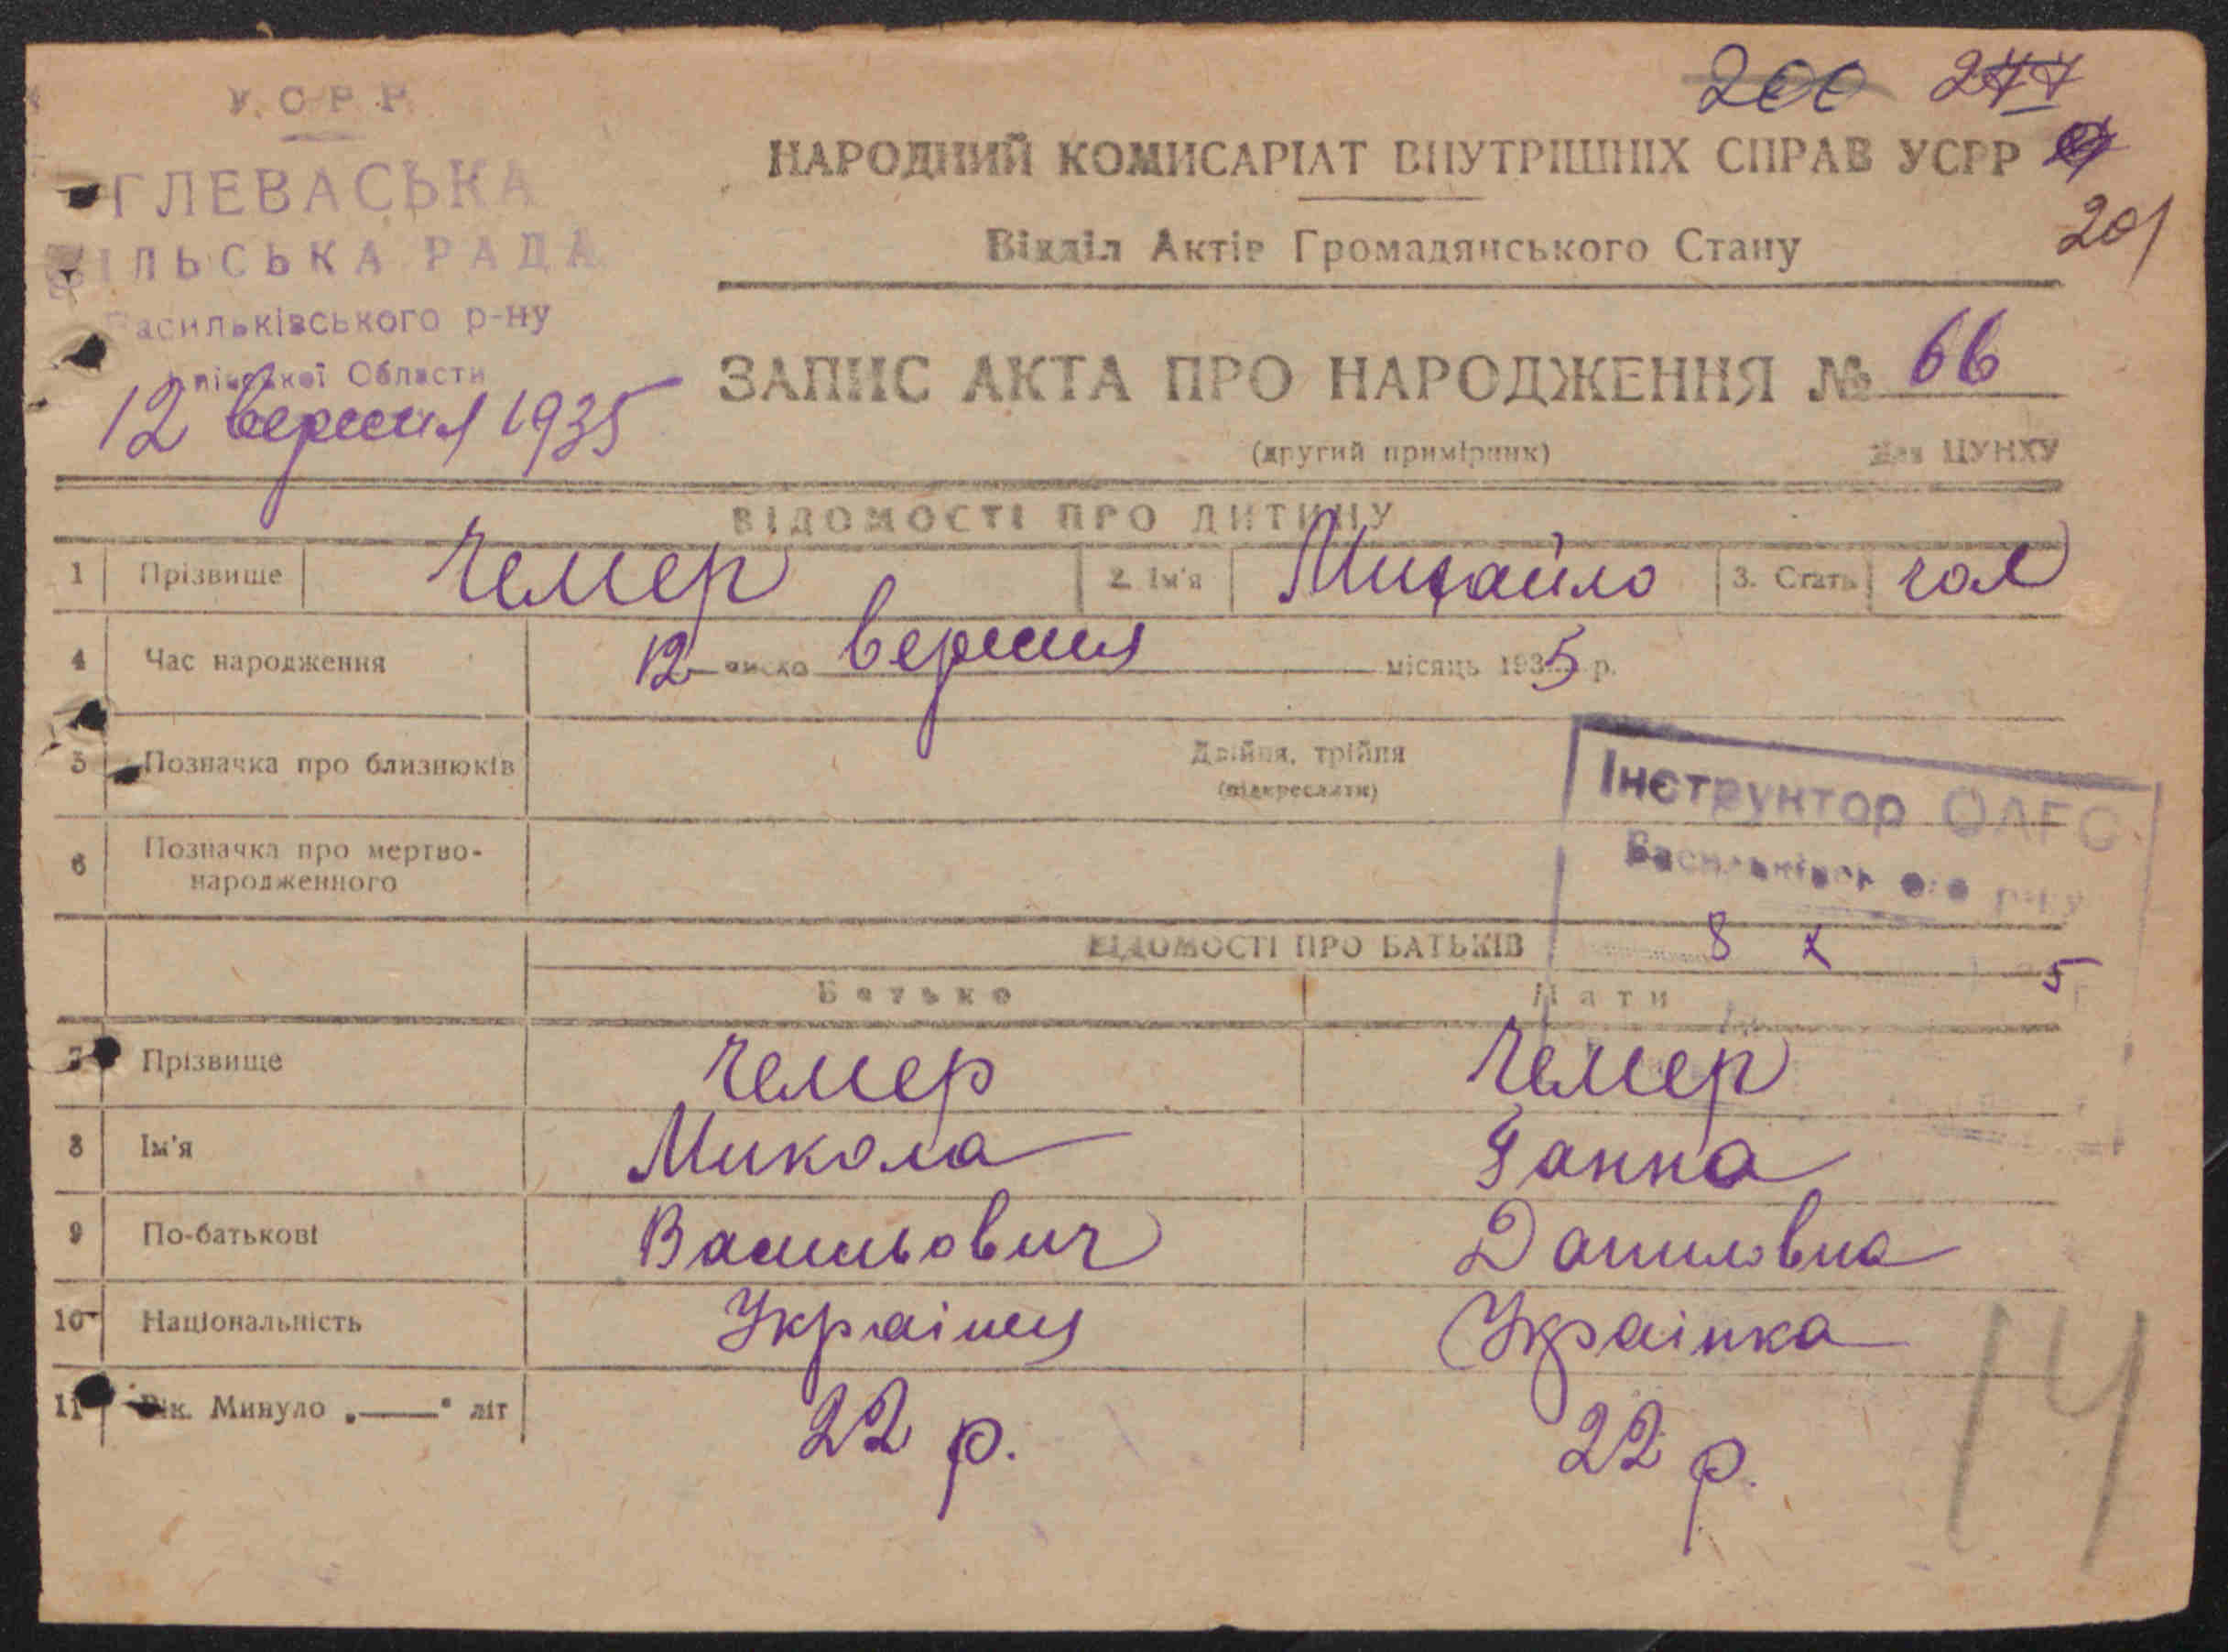 200 277
201
У.С.Р.Р.
ГЛЕВАСЬКА
СІЛЬСЬКА РАДА
Васильківського р-ну
Київської Области
12 вересня 1935
НАРОДНИЙ КОМИСАРІАТ ВНУТРІШНІХ СПРАВ УСРР
Відділ Актів Громадянського Стану
ЗАПИС АКТА ПРО НАРОДЖЕННЯ № 66
(другий примірник) Для ЦУНХУ
ВІДОМОСТІ ПРО ДИТИНУ
1 Прізвище Чемер 2. Ім'я Михайло 3. Стать чол
4 Час народження 12 число вересня місяць 1935 р.
5 Позначка про близнюків Двійня, трійня
(підкреслити)
6 Позначка про мертво-
народженного
Інструктор ОАГС
Васильківськ ого р-ну
8 X 5
ВІДОМОСТІ ПРО БАТЬКІВ
Батько Мати
7 Прізвище Чемер Чемер
8 Ім'я Микола Ганна
9 По-батькові Васильович Даниловна
10 Національність Українец Українка
11 Вік. Минуло „——" літ 22 р. 22 р.
14